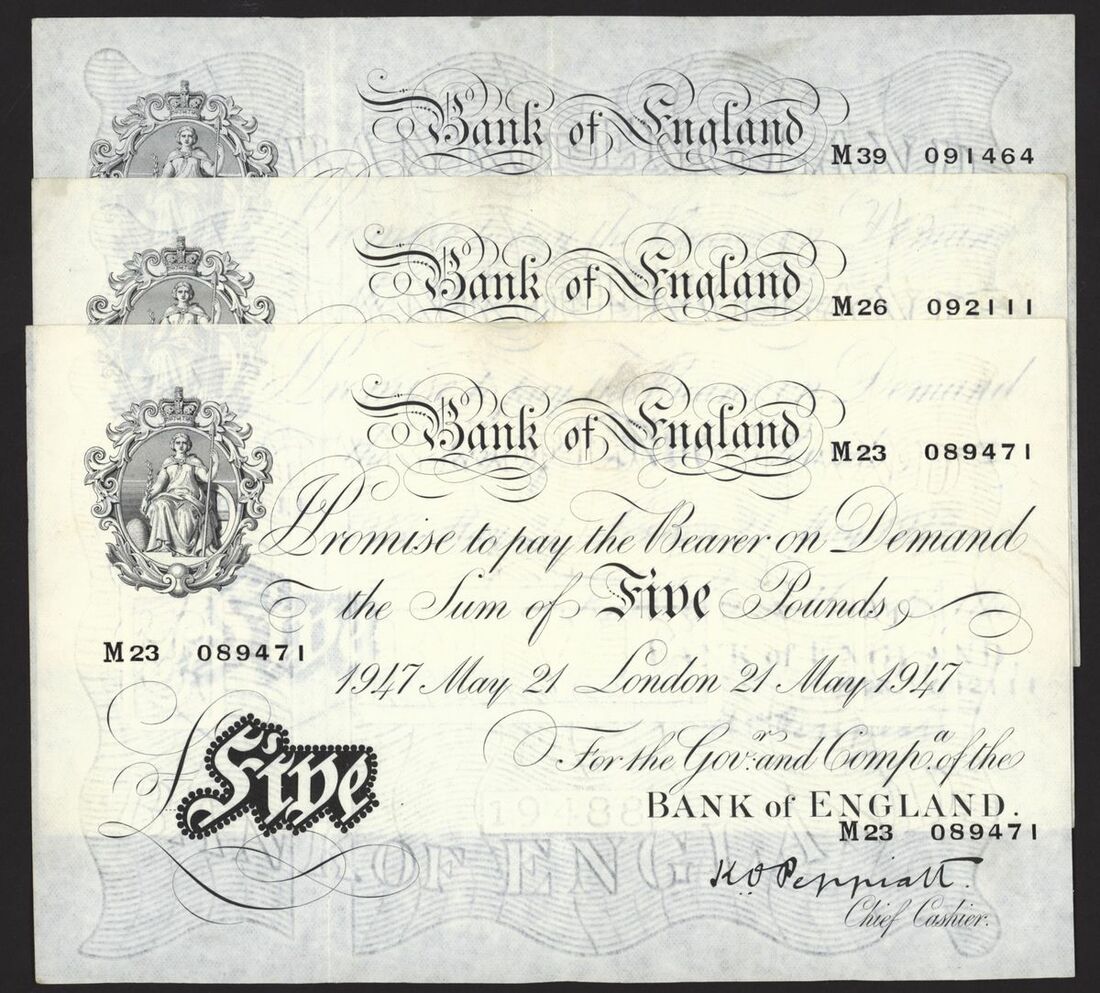 Bank of England
M39 091464
Bank of England
M26 092111
Bank of England
M23 089471
I Promise to pay the Bearer on Demand
the Sum of Five Pounds
M23 089471
1947 May 21 London 21 May 1947
For the Gov.r and Comp.a of the
£Five
BANK of ENGLAND.
M23 089471
K O Peppiatt.
Chief Cashier.
OF ENGLA